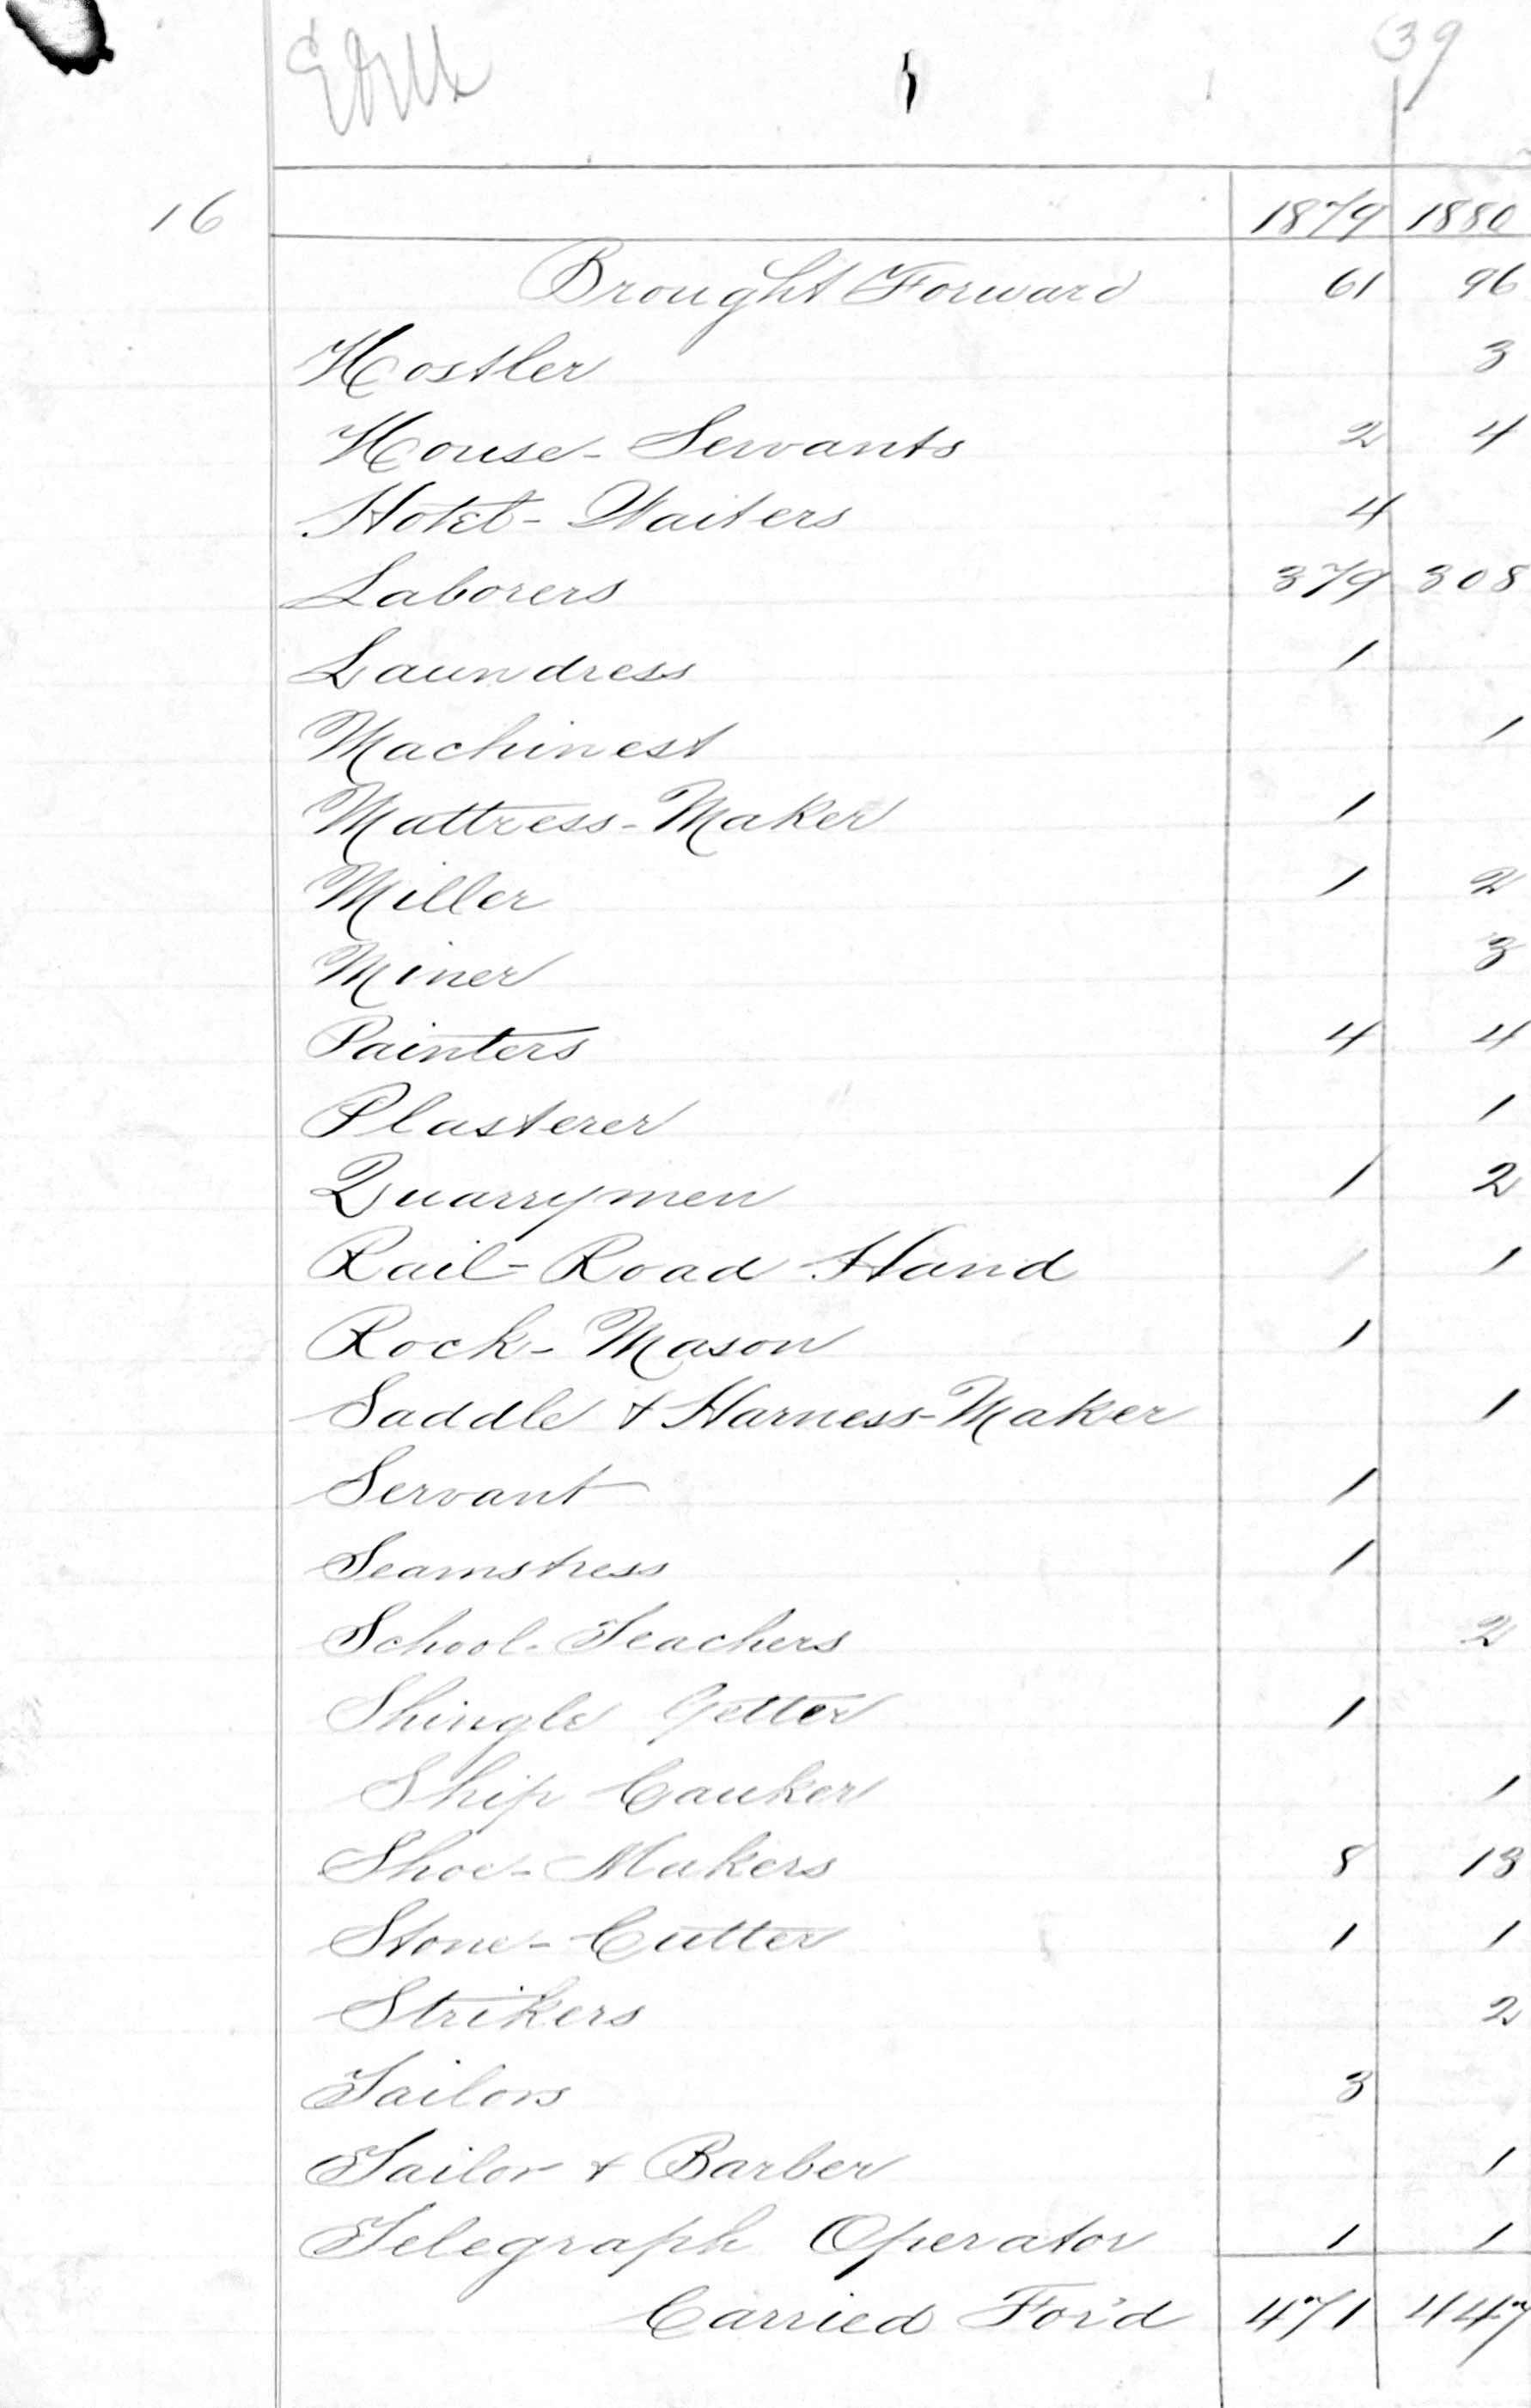 39
16 1879 1880
Brought Forward 61 96
Hostler 3
House-Servants 2 4
Hotel-Waiters 4
Laborers 379 308
Laundress 1
Machinest 1
Mattress-Maker 1
Miller 1 2
Miner 3
Painters 4 4
Plasterer 1
Quarrymen 1 2
Rail-Road Hand 1
Rock-Mason 1
Saddle & Harness-Maker 1
Servant 1
Seamstress 1
School-Teachers 2
Shingle Getter 1
Ship Cauker 1
Shoe-Makers 8 13
Stone-Cutter 1 1
Strikers 2
Tailors 3
Tailor & Barber 1
Telegraph Operator 1 1
Carried For'd 471 447